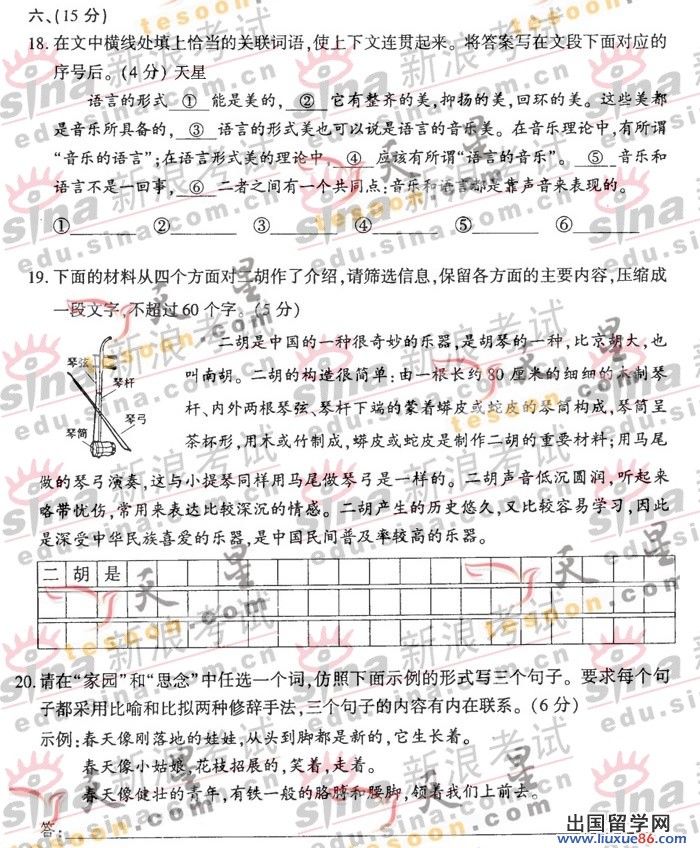 六、(15 分)
18. 在文中横线处填上恰当的关联词语,使上下文连贯起来。将答案写在文段下面对应的
序号后。(4 分) 天星
语言的形式 ① 能是美的, ② 它有整齐的美,抑扬的美,回环的美。这些美都
是音乐所具备的, ③ 语言的形式美也可以说是语言的音乐美。在音乐理论中,有所谓
“音乐的语言”;在语言形式美的理论中, ④ 应该有所谓“语言的音乐”。 ⑤ 音乐和
语言不是一回事, ⑥ 二者之间有一个共同点:音乐和语言都是靠声音来表现的。
①________ ②________ ③________ ④________ ⑤________ ⑥________
19. 下面的材料从四个方面对二胡作了介绍,请筛选信息,保留各方面的主要内容,压缩成
一段文字,不超过 60 个字。(5 分)
二胡是中国的一种很奇妙的乐器,是胡琴的一种,比京胡大,也
叫南胡。二胡的构造很简单:由一根长约 80 厘米的细细的木制琴
杆、内外两根琴弦、琴杆下端的蒙着蟒皮或蛇皮的琴筒构成,琴筒呈
茶杯形,用木或竹制成,蟒皮或蛇皮是制作二胡的重要材料;用马尾
琴弦
琴杆
琴弓
琴筒
做的琴弓演奏,这与小提琴同样用马尾做琴弓是一样的。二胡声音低沉圆润,听起来
略带忧伤,常用来表达比较深沉的情感。二胡产生的历史悠久,又比较容易学习,因此
是深受中华民族喜爱的乐器,是中国民间普及率较高的乐器。
二胡是
20. 请在“家园”和“思念”中任选一个词,仿照下面示例的形式写三个句子。要求每个句
子都采用比喻和比拟两种修辞手法,三个句子的内容有内在联系。(6 分)
示例:春天像刚落地的娃娃,从头到脚都是新的,它生长着。
春天像小姑娘,花枝招展的,笑着,走着。
春天像健壮的青年,有铁一般的胳膊和腰脚,领着我们上前去。
答:
出国留学网
www.liuxue86.com
sina 新浪考试
edu.sina.com.cn
天星
tesoon.com